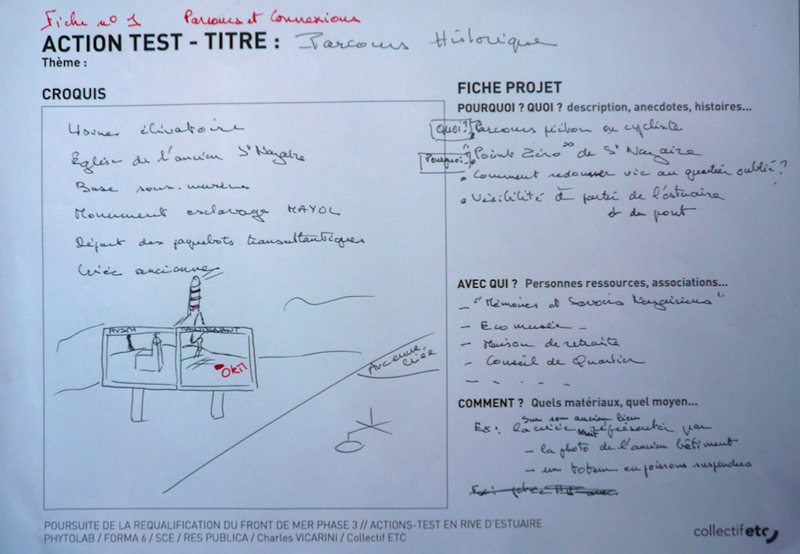 Fiche n° 1 Parcours et Connexions
ACTION TEST - TITRE : Parcours Historique
Thème :
CROQUIS
Usines élévatoire
Eglise de l'ancien St Nazaire
Base sous-marine
Monument esclavage MAYOL
Départ des paquebots transatlantiques
Criée ancienne
AVANT
MAINTENANT
OKM
Ancienne Criée
FICHE PROJET
POURQUOI ? QUOI ? description, anecdotes, histoires...
Quoi ? Parcours piéton ou cycliste
Pourquoi ? "Point Zéro" de St Nazaire
• Comment redonner vie au quartier oublié ?
• Visibilité à partir de l'estuaire
et du pont
AVEC QUI ? Personnes ressources, associations...
- "Mémoires et Savoirs Nazairiens"
- Eco musée -
- Maison de retraite
- Conseil de Quartier
- - - - -
COMMENT ? Quels matériaux, quel moyen...
sur son ancien lieu
Ex : la criée représentée par
- la photo de l'ancien bâtiment
- un totem en poissons suspendus
POURSUITE DE LA REQUALIFICATION DU FRONT DE MER PHASE 3 // ACTIONS-TEST EN RIVE D'ESTUAIRE
PHYTOLAB / FORMA 6 / SCE / RES PUBLICA / Charles VICARINI / Collectif ETC
collectif etc